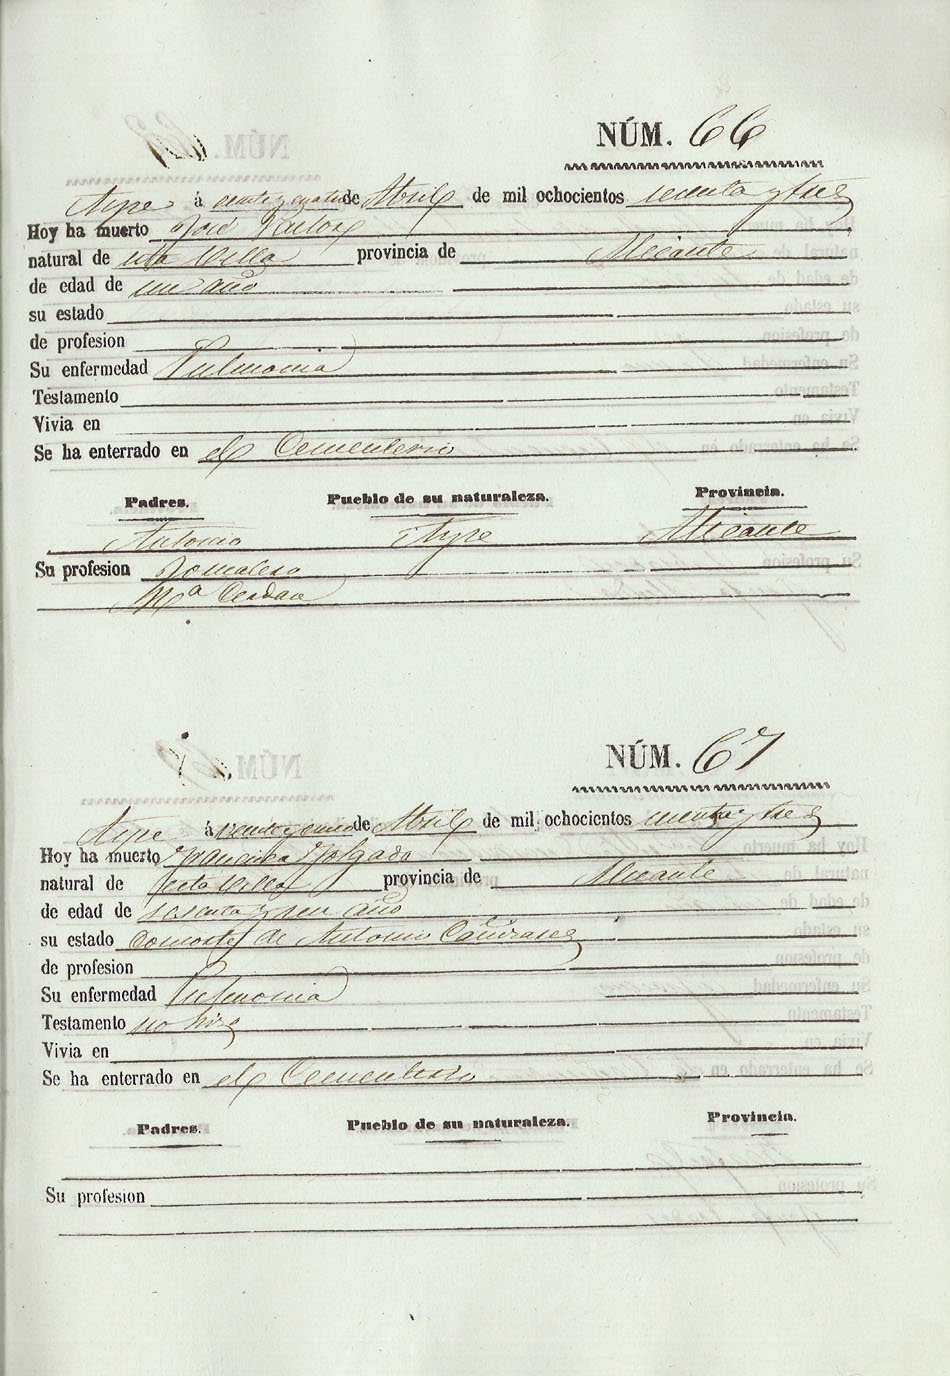 NÚM. 66
Aspe á veinte y cuatro de Abril de mil ochocientos sesenta y tres
Hoy ha muerto José Pastor
natural de esta Villa provincia de Alicante
de edad de un año
su estado
de profesion
Su enfermedad Pulmonia
Testamento
Vivia en
Se ha enterrado en el Cementerio
Padres. Pueblo de su naturaleza. Provincia.
Antonio Aspe Alicante
Su profesion Jornalero
Mª Cerdan
NÚM. 67
Aspe á veinte y cinco de Abril de mil ochocientos sesenta y tres
Hoy ha muerto Francisca
natural de esta Villa provincia de Alicante
de edad de sesenta y un año
su estado consorte de Antonio Cañizares
de profesion
Su enfermedad Pulmonia
Testamento no hizo
Vivia en
Se ha enterrado en el Cementerio
Padres. Pueblo de su naturaleza. Provincia.
Su profesion